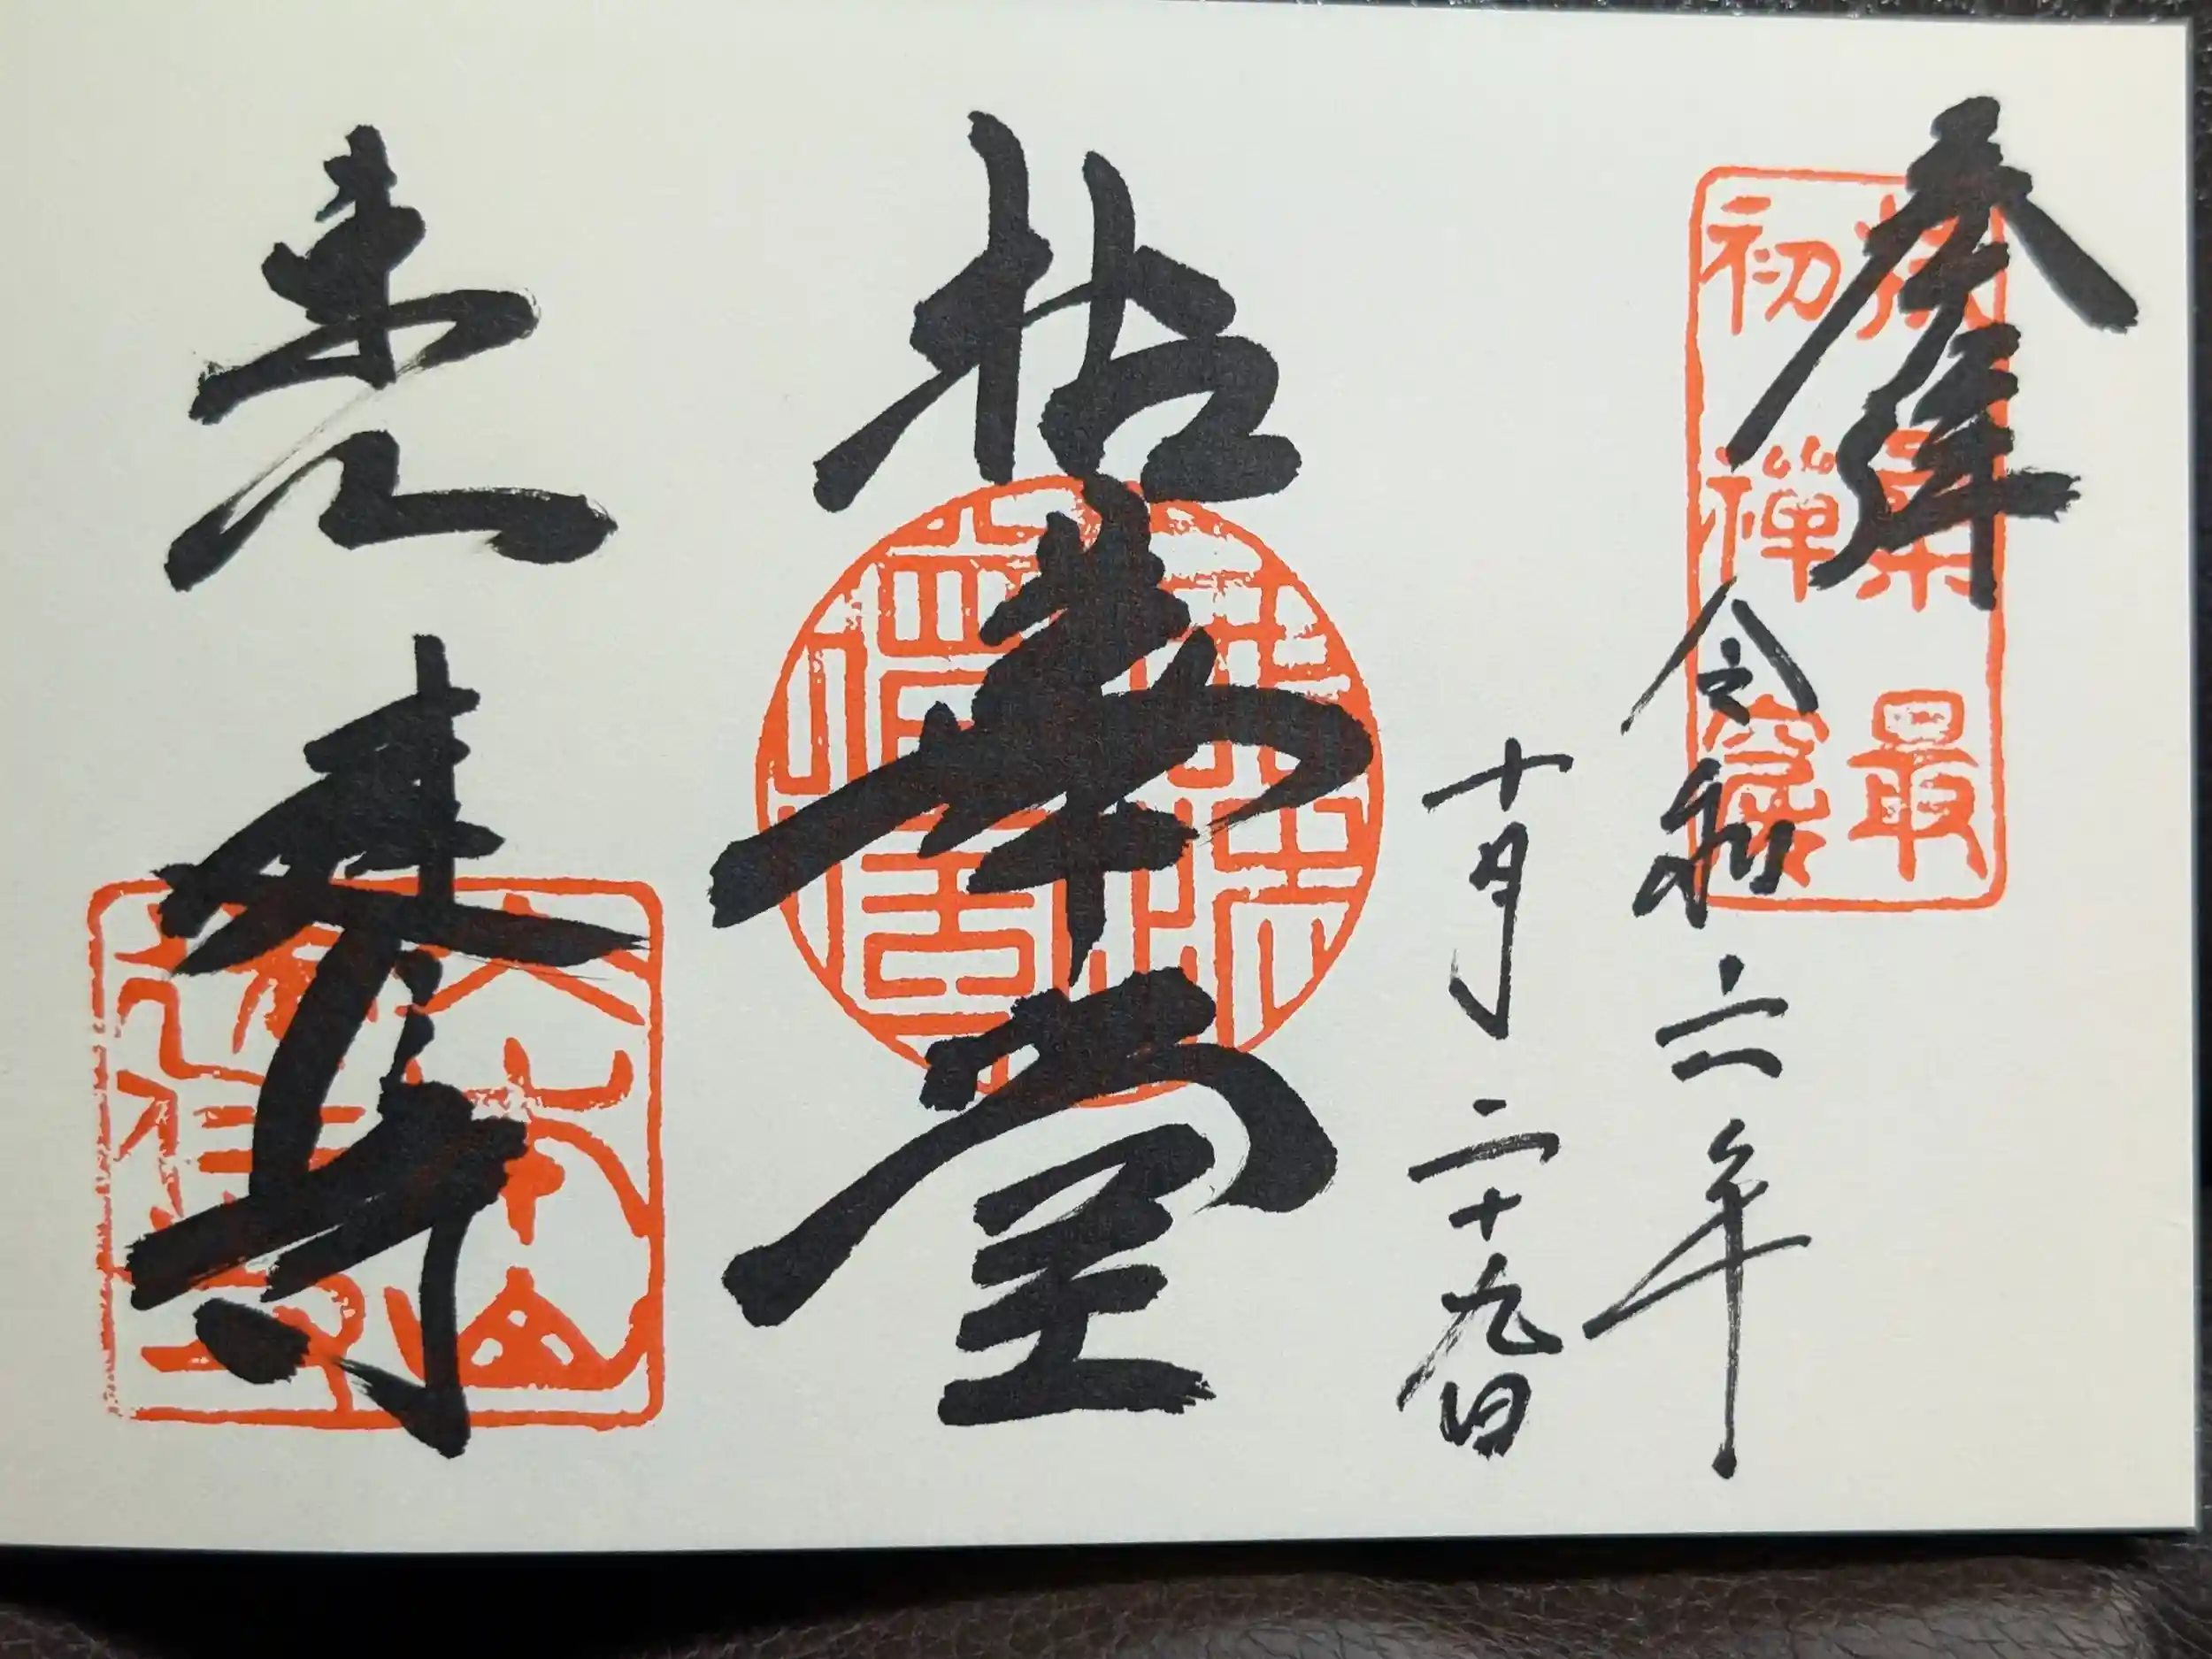 奉拝
扶桑最
初禪窟
令和六年
十月二十九日
拈華堂
大本山
建仁寺